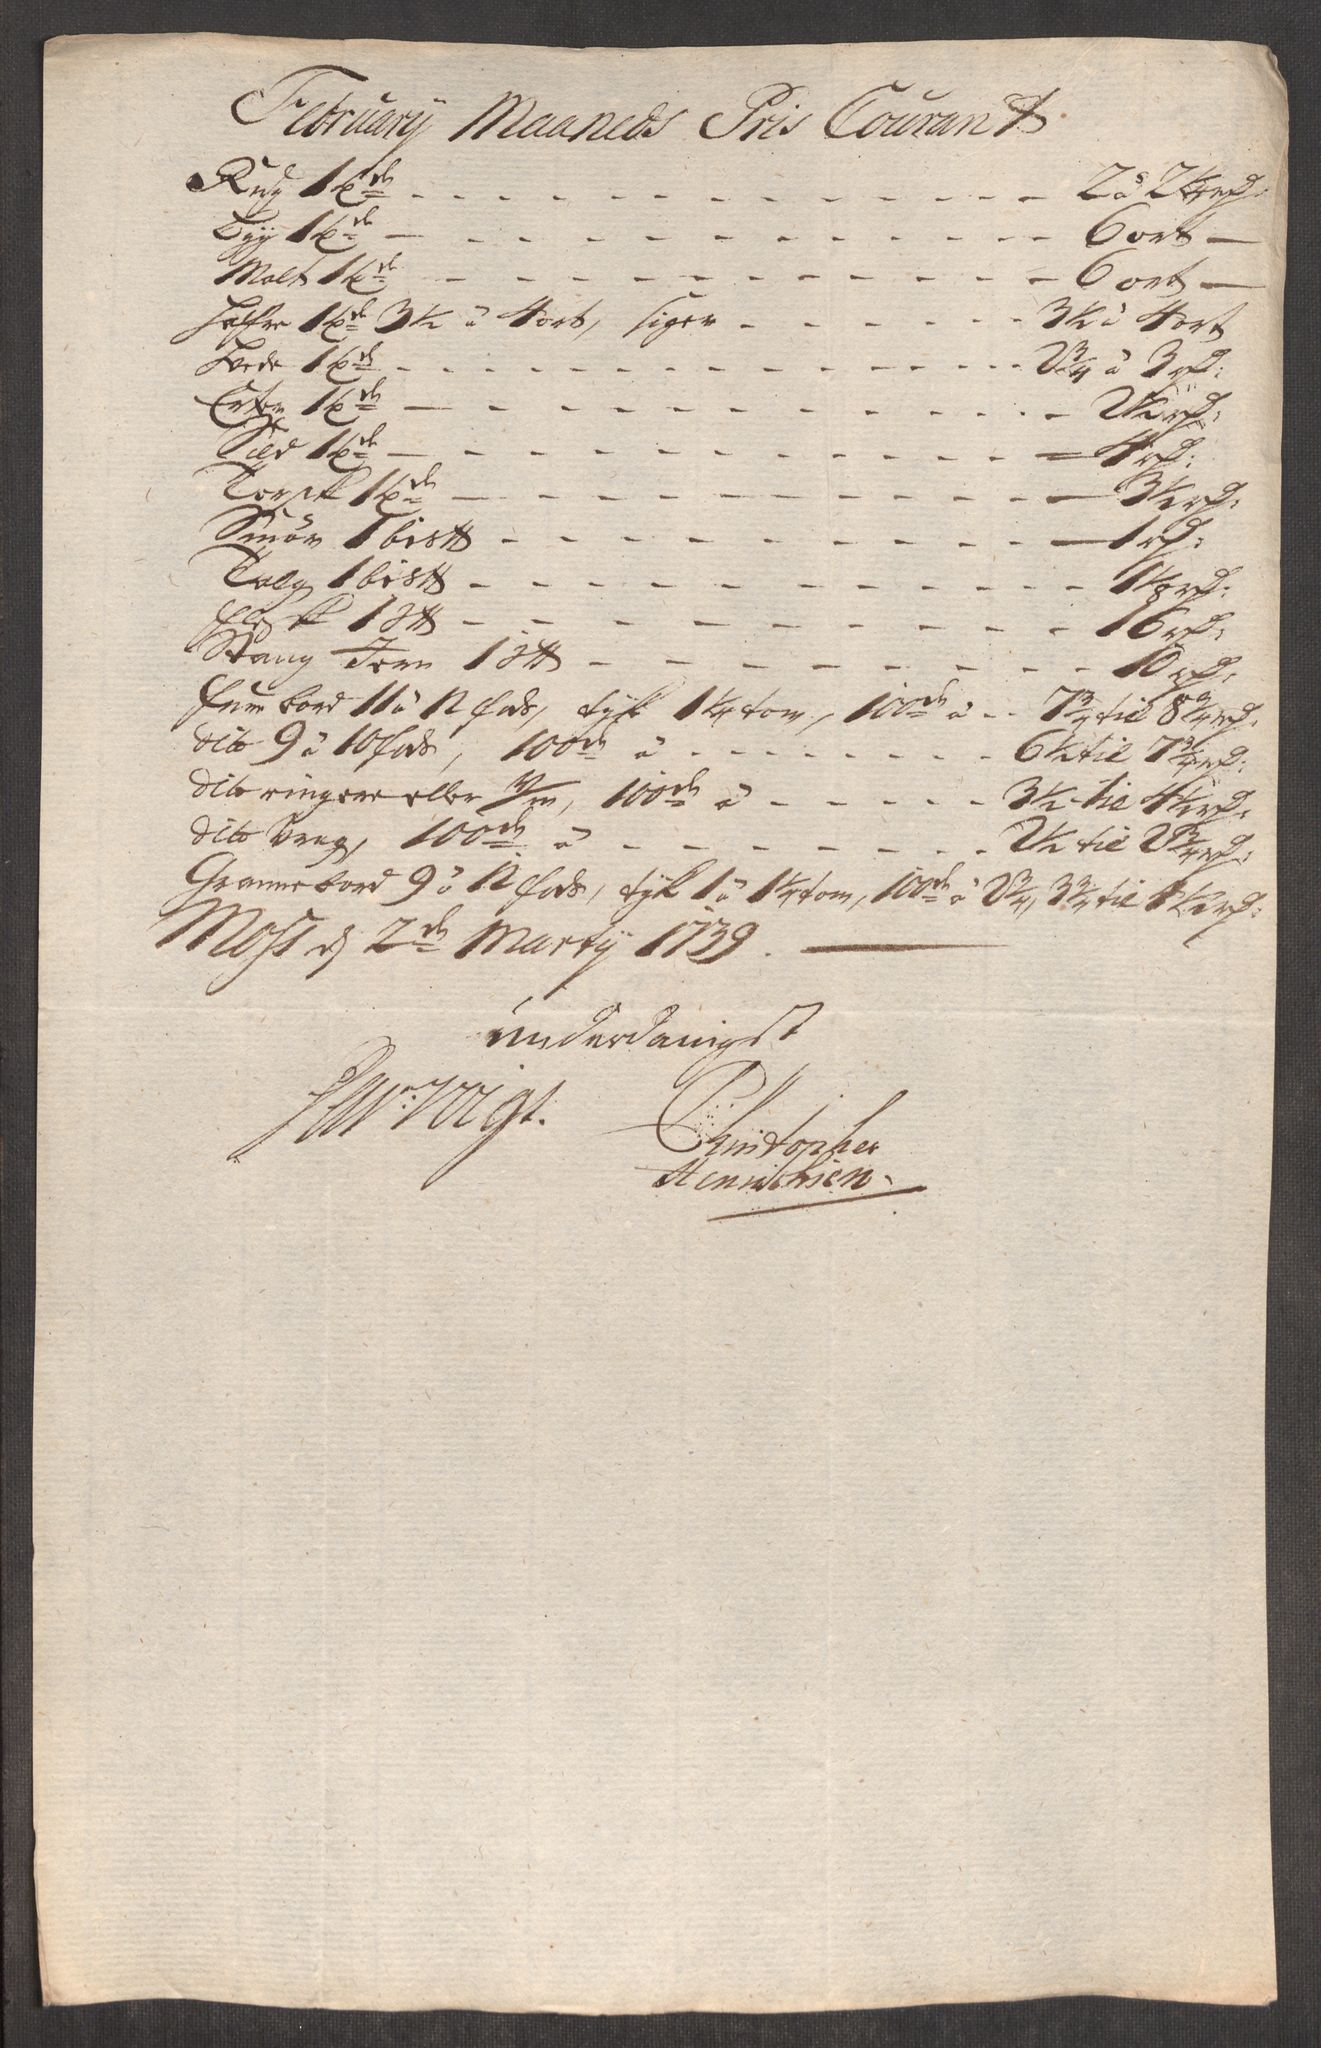 February Maaneds Pris Courant
Rug 1 td - - - 2 à 2¼ rd:
Byg 1 td - - - 6 ort -
Malt 1 td - - - 6 ort -
Hafre 1 td 3½ à 4 ort, siger - - - 3½ à 4 ort
Hvede 1 td - - - 2¾ à 3 rd:
Erter 1 td - - - 2½ rd:
Sild 1 td - - - 4 rd:
Torsk 1 td - - - 3½ rd:
Smör 1 bis℔ - - - 1 rd:
Talg 1 bis℔ - - - rd:
Flesk 1 s℔ - - - 16 rd:
Stang Jern 1 s℔ - - - 10 rd:
Furu bord 11 à 12 fods, tyk 1¼ tom, 100de à - - 7¾ til 8¾ rd:
dito 9 à 10 fods, 100de à - - - 6½ til 7¾ rd:
dito ringere eller, 100de à - - - 3½ til 4½ rd:
dito Vrag, 100de à - - - 2½ til 2¾ rd:
Granne bord 9 à 12 fods, tyk 1 à 1¼ tom, 100de à 2¾, 3¾ til rd:
Moss d 2de Marty 1739.
underdanigst
Voigt. Christopher
Henrichsen.